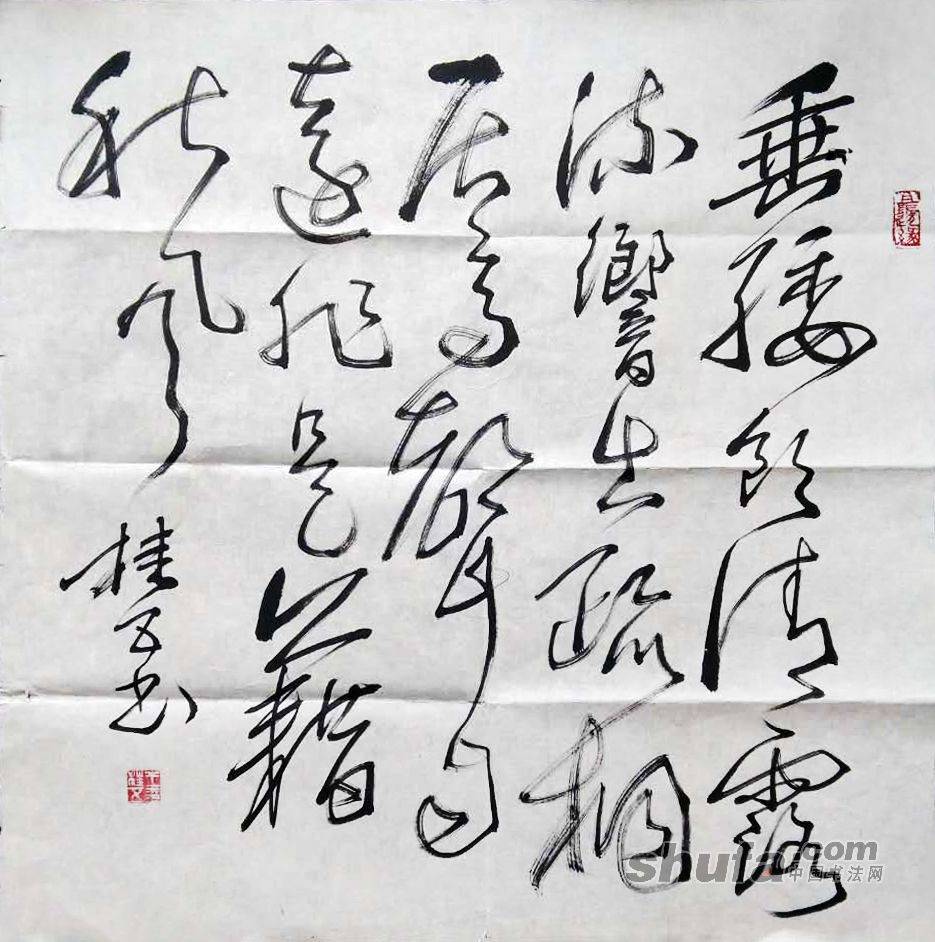 垂緌飲清露
流響出疏桐
居高聲自
遠非是藉
秋風
桂五书
shufa.com
中国书法网